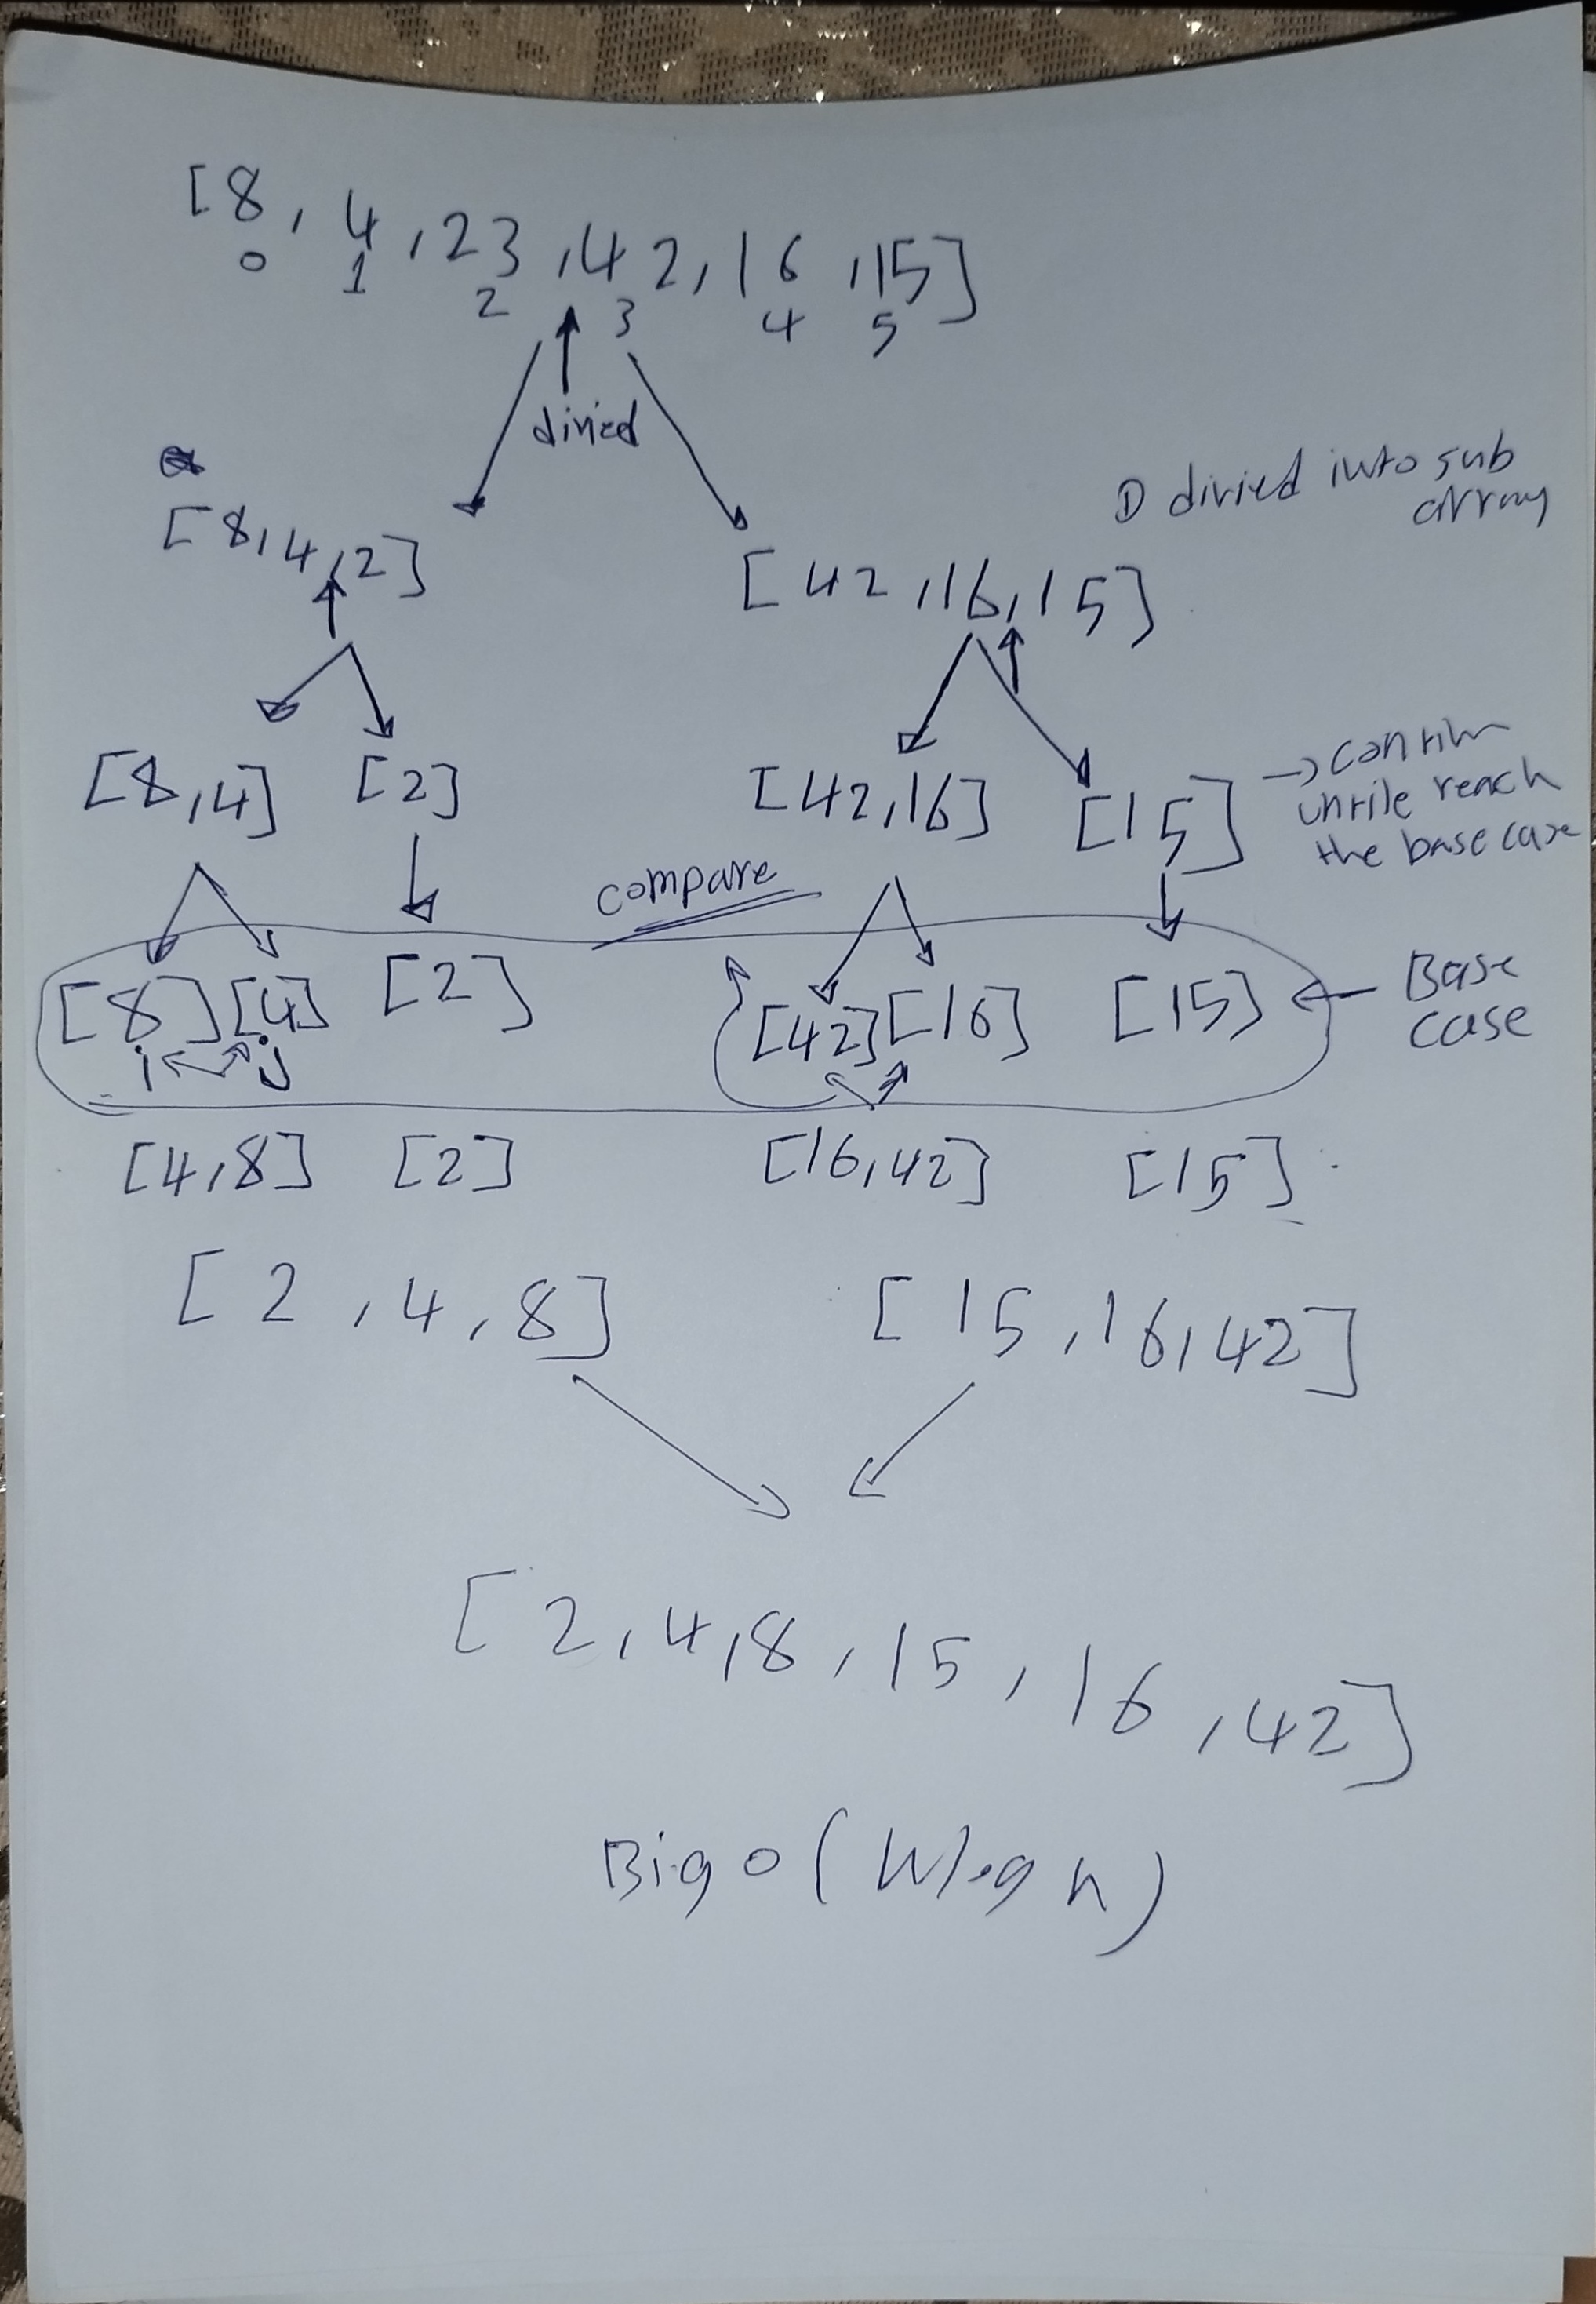 [8, 4, 23, 42, 16, 15]
0 1 2 3 4 5
divied
[8,4,2]
① divied into sub
array
[42,16,15]
[8,4] [2] [42,16] [15]
→
untile reach
the base case
compare
[8] [4] [2] [42] [16] [15] ← Base
case
i j
[4,8] [2] [16,42] [15]
[2,4,8] [15,16,42]
[2,4,8,15,16,42]
Big o (N log n)